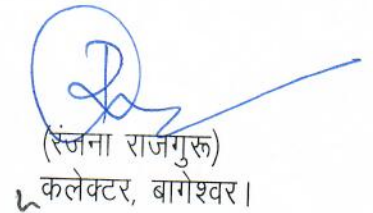 (रंजना राजगुरू)
कलेक्टर, बागेश्वर।